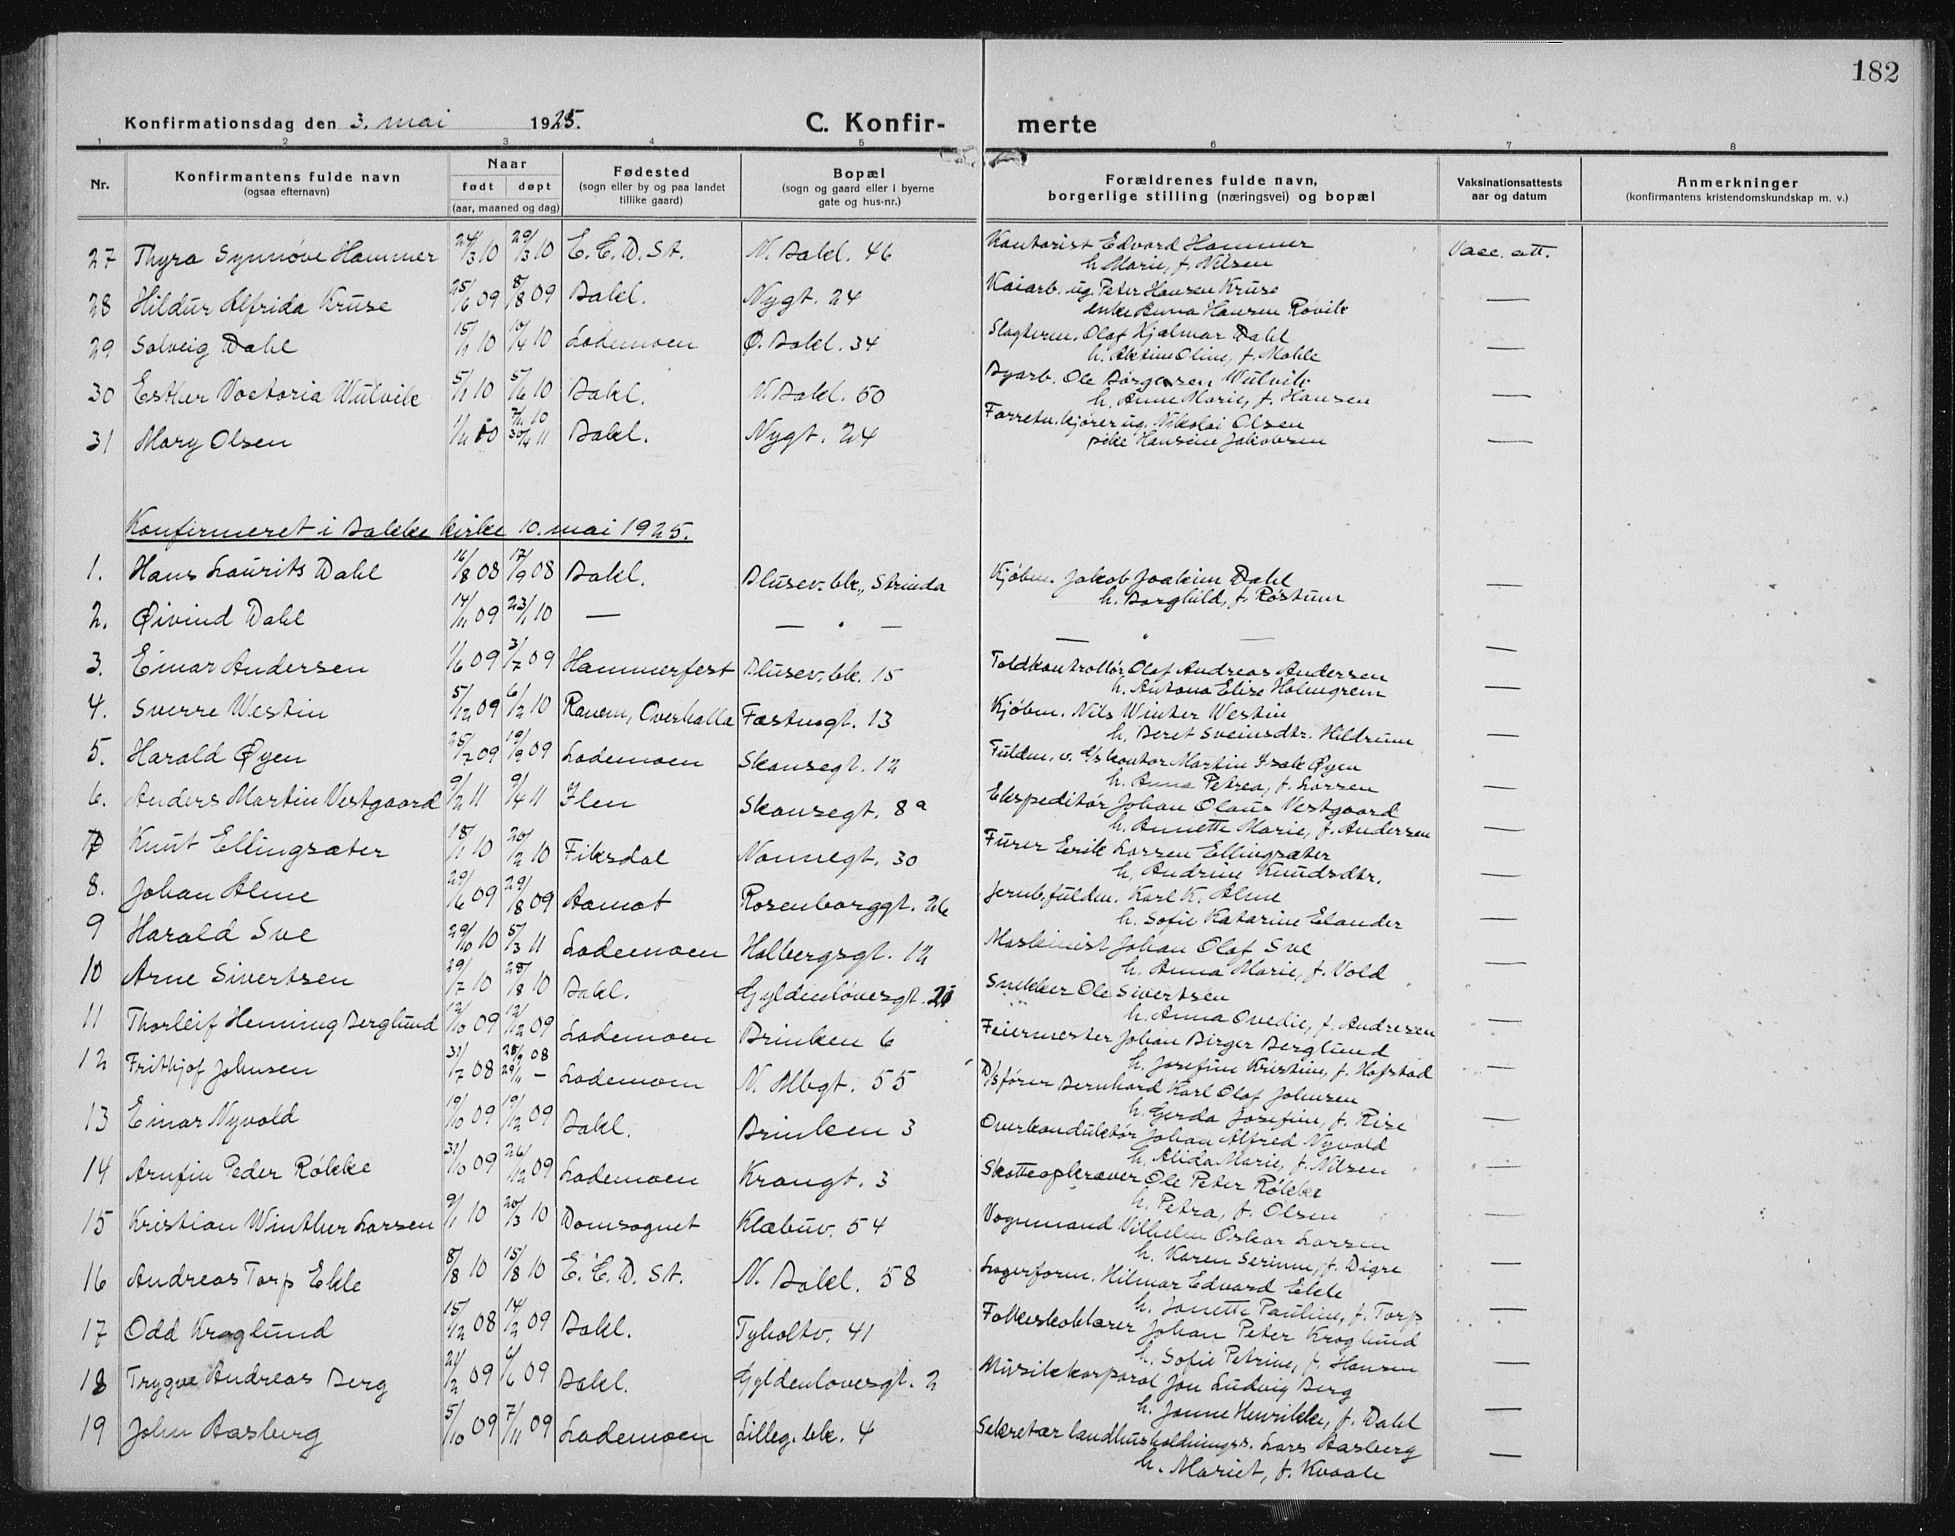 182
Konfirmationsdag den 3. mai 1925.
C. Konfir- merte
1 2 3 4 5 6 7 8
Nr. | Konfirmantens fulde navn (ogsaa efternavn) | Naar født døpt (aar, maaned og dag) | Fødested (sogn eller by og paa landet tillike gaard) | Bopæl (sogn og gaard eller i byerne gate og hus-nr.) | Forældrenes fulde navn, borgerlige stilling (næringsvei) og bopæl | Vaksinationsattests aar og datum | Anmerkninger (konfirmantens kristendomskundskap m. v.)
27 Thyra Synnøve Hammer 24/3 10 29/3 10 E. C. D. St. N. Bakl. 46 Kontorist Edvard Hammer Vacc. att.
h. Marie, f. Nilsen
28 Hildur Alfrida Kruse 25/6 09 8/8 09 Bakl. Nygt. 24 Kaiarb. ug. Peter Hansen Kruse —
enke Anna Hansen Røvik
29 Solveig Dahl 10 10 Lademoen Ø. Bakl. 34 Slagterm. Olaf Hjalmar Dahl —
h. Oline, f. Mohle
30 Esther Voctoria Wulvik 5/1 10 5/6 10 Bakl. N. Bakl. 50 Byarb. Ole Børgensen Wulvik —
h. Anne Marie, f. Hansen
31 Mary Olsen 10 30/4 11 Bakl. Nygt. 24 Forretn.kjører ug. Nikolai Olsen —
pike Hansine Jakobsen
Konfirmeret i Bakke kirke 10. mai 1925.
1. Hans Laurits Dahl 16/8 08 17/9 08 Bakl. Blusev.bk., Strinda Kjøbm. Jakob Joakim Dahl —
h. Borghild, f. Røstum
2. Øivind Dahl 14/11 09 23/1 10 — — " — — " — —
3. Einar Andersen 1/6 09 3/7 09 Hammerfest Blusev.bk. 15 Toldkontrollør Olaf Andreas Andersen —
h. Antona Elise Holmgrem
4. Sverre Westin 5/12 09 6/2 10 Ranem, Overhalla Fæstnsgt. 13 Kjøbm. Nils Winter Westin —
h. Beret Sveinsdtr. Hiltrum
5. Harald Øyen 25/7 09 19/9 09 Lademoen Skansegt. 12 Fuldm. v. kontor Martin Isak Øyen —
h. Anna Petrea, f. Larsen
6. Anders Martin Vestgaard 9/2 11 9/4 11 Ilen Skansegt. 8a Ekspeditør Johan Olaus Vestgaard —
h. Annette Marie, f. Andersen
7 Knut Ellingsæter 18/1 10 20/2 10 Fiksdal Nonnegt. 30 Furer Erik Larsen Ellingsæter —
h. Andrine Knudsdtr.
8. Johan Alme 29/6 09 29/8 09 Aamot Rosenborggt. 26 Jernb.fuldm. Karl K. Alme —
h. Sofie Katarine Elander
9 Harald Sve 29/10 10 5/3 11 Lademoen Holbergsgt. 12 Maskinist Johan Olaf Sve —
h. Anna Marie, f. Vold
10 Arne Sivertsen 29/7 10 28/8 10 Bakl. Gyldenløvesgt. 21 Snikker Ole Sivertsen —
h. Anna Ovedie, f. Andresen
11 Thorleif Henning Berglund 12/10 09 12/12 09 Lademoen Brinken 6 Feiermester Johan Birger Berglund —
h. Josefine Kristine, f. Hofstad
12 Frithjof Johnsen 31/7 08 08 29/11 — Lademoen N. Albgt. 55 D/sfører Bernhard Karl Olaf Johnsen —
h. Gerda Josefine, f. Rise
13 Einar Nyvold 19/10 09 19/12 09 Bakl. Brinken 3 Overkonduktør Johan Alfred Nyvold —
h. Alida Marie, f. Nilsen
14 Arnfin Peder Røkke 31/10 09 26/12 09 Lademoen Krongt. 3 Skatteopkræver Ole Peter Røkke —
h. Petra, f. Olsen
15 Kristian Winther Larsen 9/1 10 20/3 10 Domsognet Klæbuv. 54 Vognmand Vilhelm Oskar Larsen —
h. Karen Serine, f. Digre
16 Andreas Torp Ekle 8/8 10 15/8 10 E. C. D. St. N. Bakl. 58 Lagerform. Hilmar Edvard Ekle —
h. Janette Pauline, f. Torp
17 Odd Kroglund 15/12 08 14/2 09 Bakl. Tyholtv. 41 Folkeskolelærer Johan Peter Kroglund —
h. Sofie Petrine, f. Hansen
18 Trygve Andreas Berg 21/2 09 6/6 09 Bakl. Gyldenlovesgt. 2 Musikkorporal Jon Ludvig Berg —
h. Janne Henrikke, f. Dahl
19 John Aasberg 5/10 09 7/11 09 Lademoen Lilleg.bk. 4 Sekretær landhusholdningss. Lars Aasberg —
h. Mariet, f. Kvaale